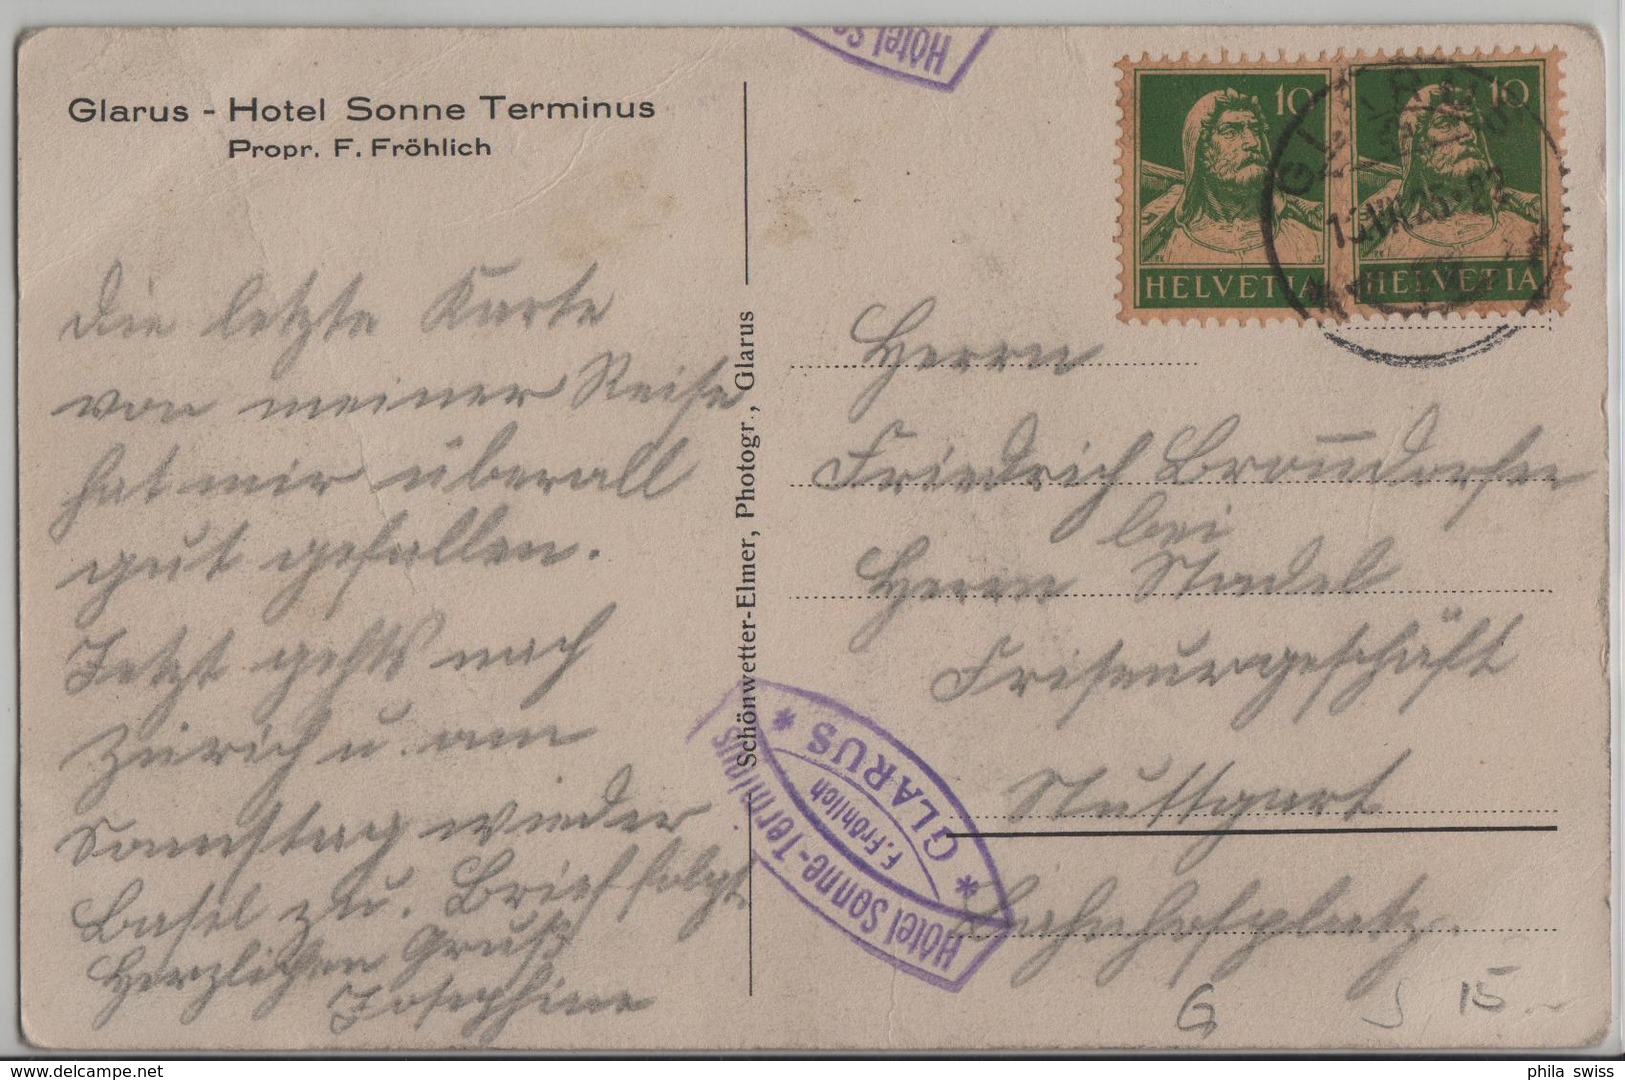 Glarus - Hotel Sonne Terminus
Propr. F. Fröhlich
Die letzte Karte
von meiner Reise
hat mir überall
gut gefallen.
Jetzt gehts nach
Zürich u. am
Samstag wieder
Basel zu. Brief folgt.
Herzlichen Gruß
Josephine
Schönwetter-Elmer, Photogr., Glarus
Hotel So
10 10
HELVETIA HELVETIA
GLARUS
Herrn
Friedrich
bei
Herrn Stadel
Friseurgeschäft
Stuttgart
Bahnhofplatz.
Hotel Sonne-Terminus
F. Fröhlich
* GLARUS *
G 15.-
phila swiss
www.delcampe.net